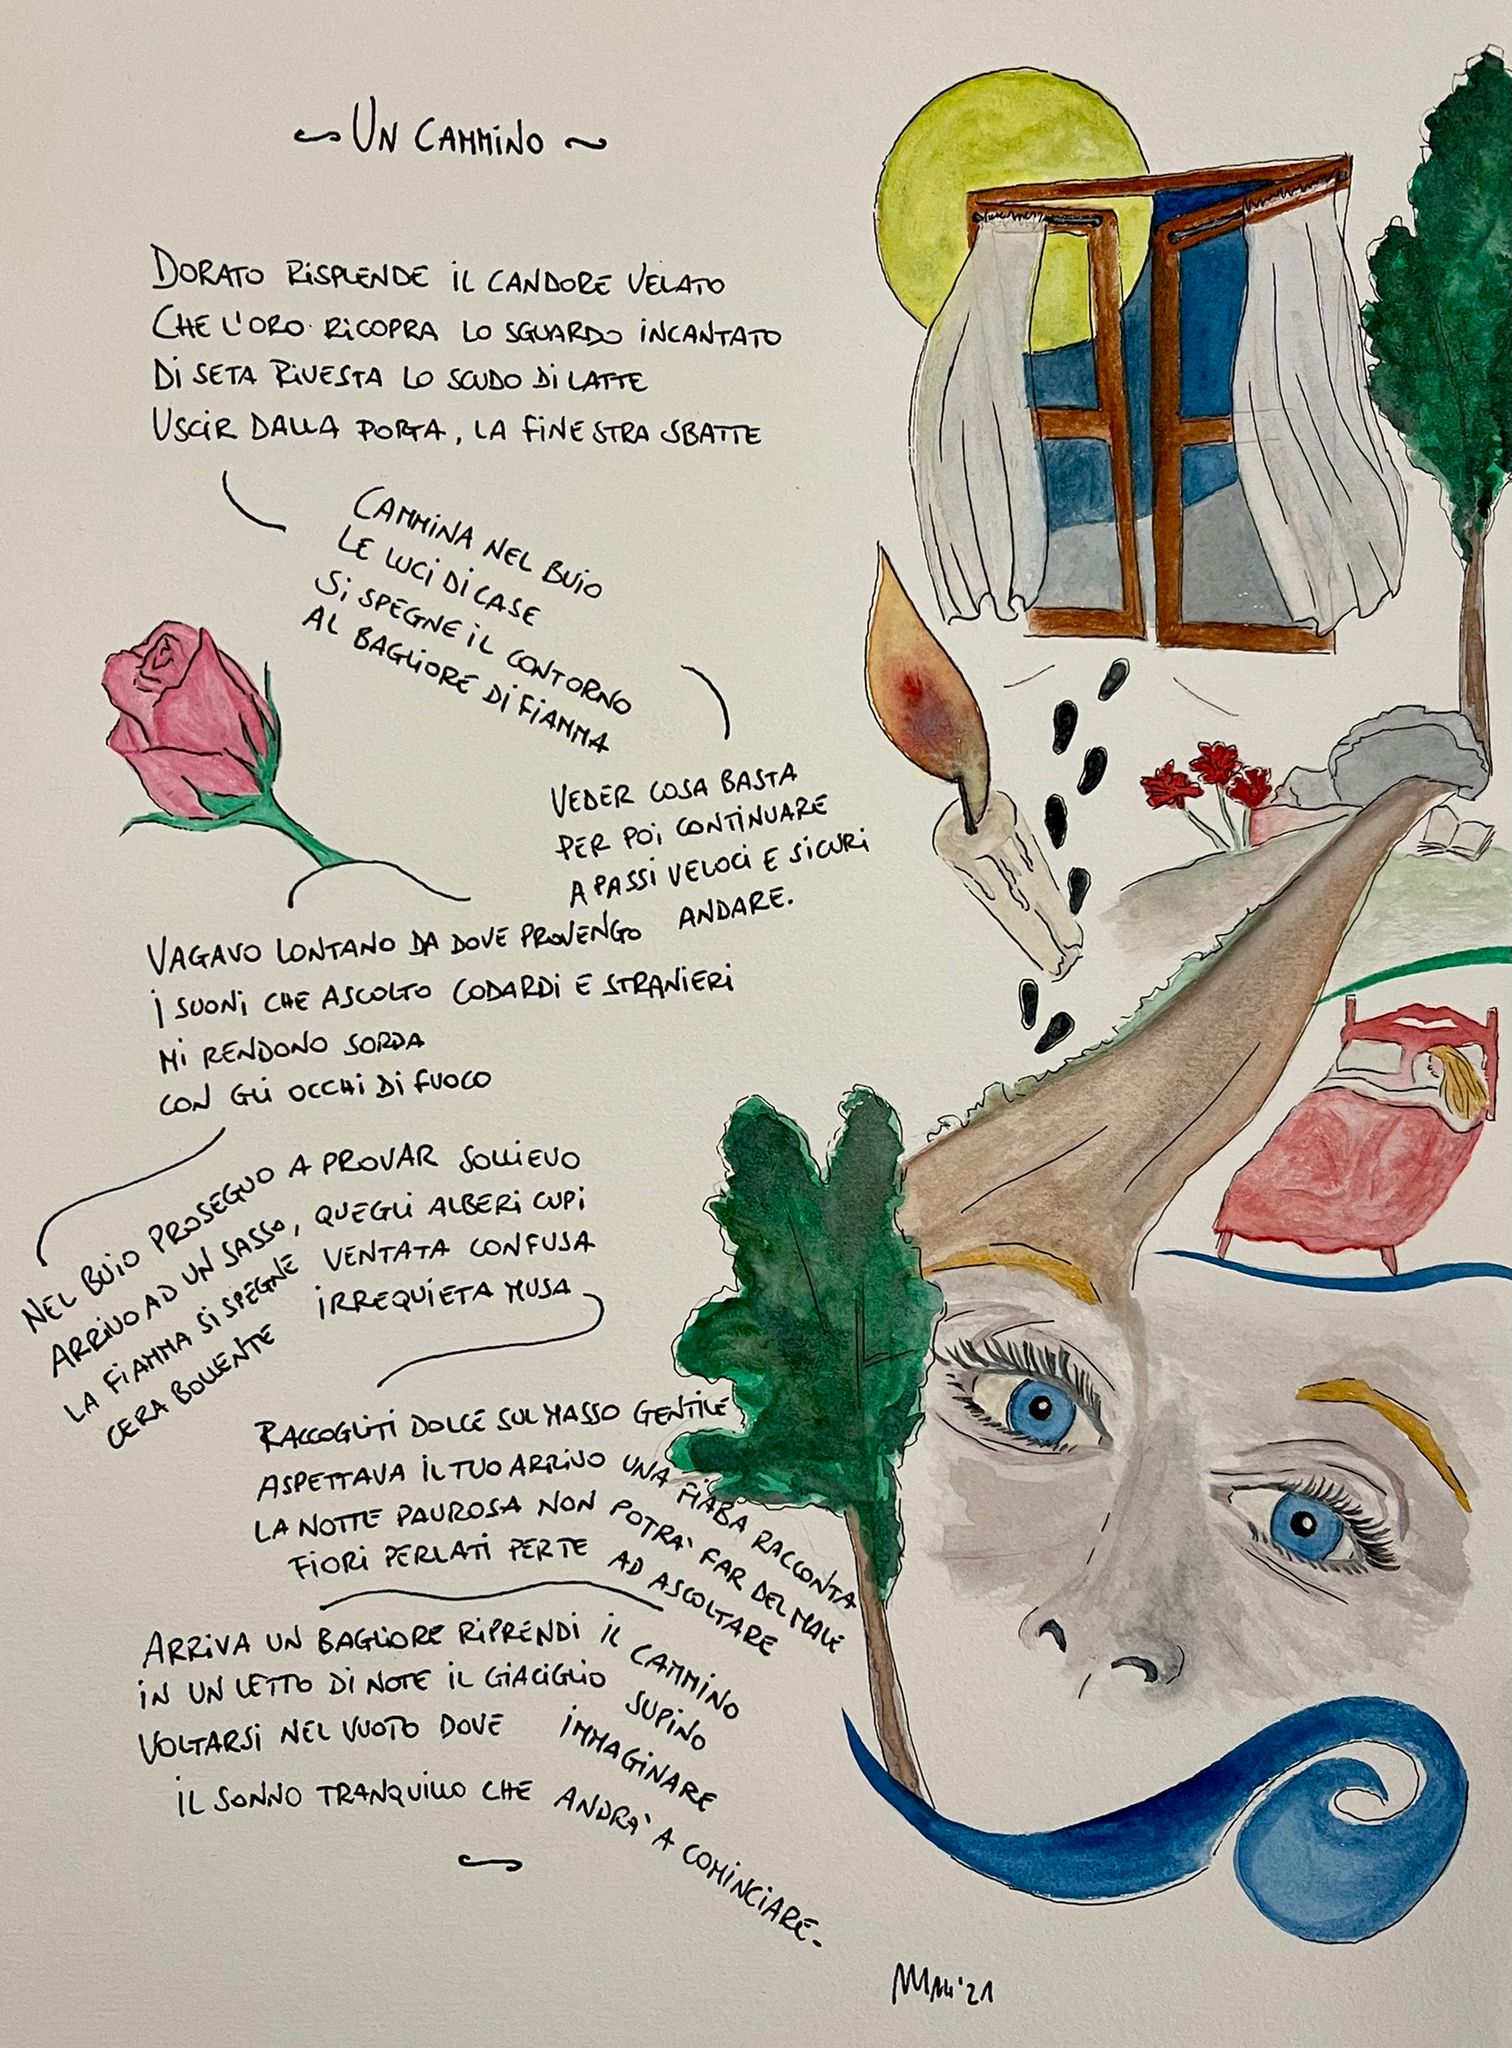 UN CAMMINO
DORATO RISPLENDE IL CANDORE VELATO
CHE L'ORO RICOPRA LO SGUARDO INCANTATO
DI SETA RIVESTA LO SCUDO DI LATTE
USCIR DALLA PORTA, LA FINESTRA SBATTE
CAMMINA NEL BUIO
LE LUCI DI CASE
SI SPEGNE IL CONTORNO
AL BAGLIORE DI FIAMMA
VEDER COSA BASTA
PER POI CONTINUARE
A PASSI VELOCI E SICURI
ANDARE.
VAGAVO LONTANO DA DOVE PROVENGO
I SUONI CHE ASCOLTO CODARDI E STRANIERI
MI RENDONO SORDA
CON GLI OCCHI DI FUOCO
NEL BUIO PROSEGUO A PROVAR SOLLIEVO
ARRIVO AD UN SASSO, QUEGLI ALBERI CUPI
LA FIAMMA SI SPEGNE VENTATA CONFUSA
CERA BOLLENTE IRREQUIETA MUSA
RACCOGLITI DOLCE SUL MASSO GENTILE
ASPETTAVA IL TUO ARRIVO UNA FIABA RACCONTA
LA NOTTE PAUROSA NON POTRA' FAR DEL MALE
FIORI PERLATI PER TE AD ASCOLTARE
ARRIVA UN BAGLIORE RIPRENDI IL CAMMINO
IN UN LETTO DI NOTE IL GIACIGLIO SUPINO
VOLTARSI NEL VUOTO DOVE IMMAGINARE
IL SONNO TRANQUILLO CHE ANDRA' A COMINCIARE.
'21